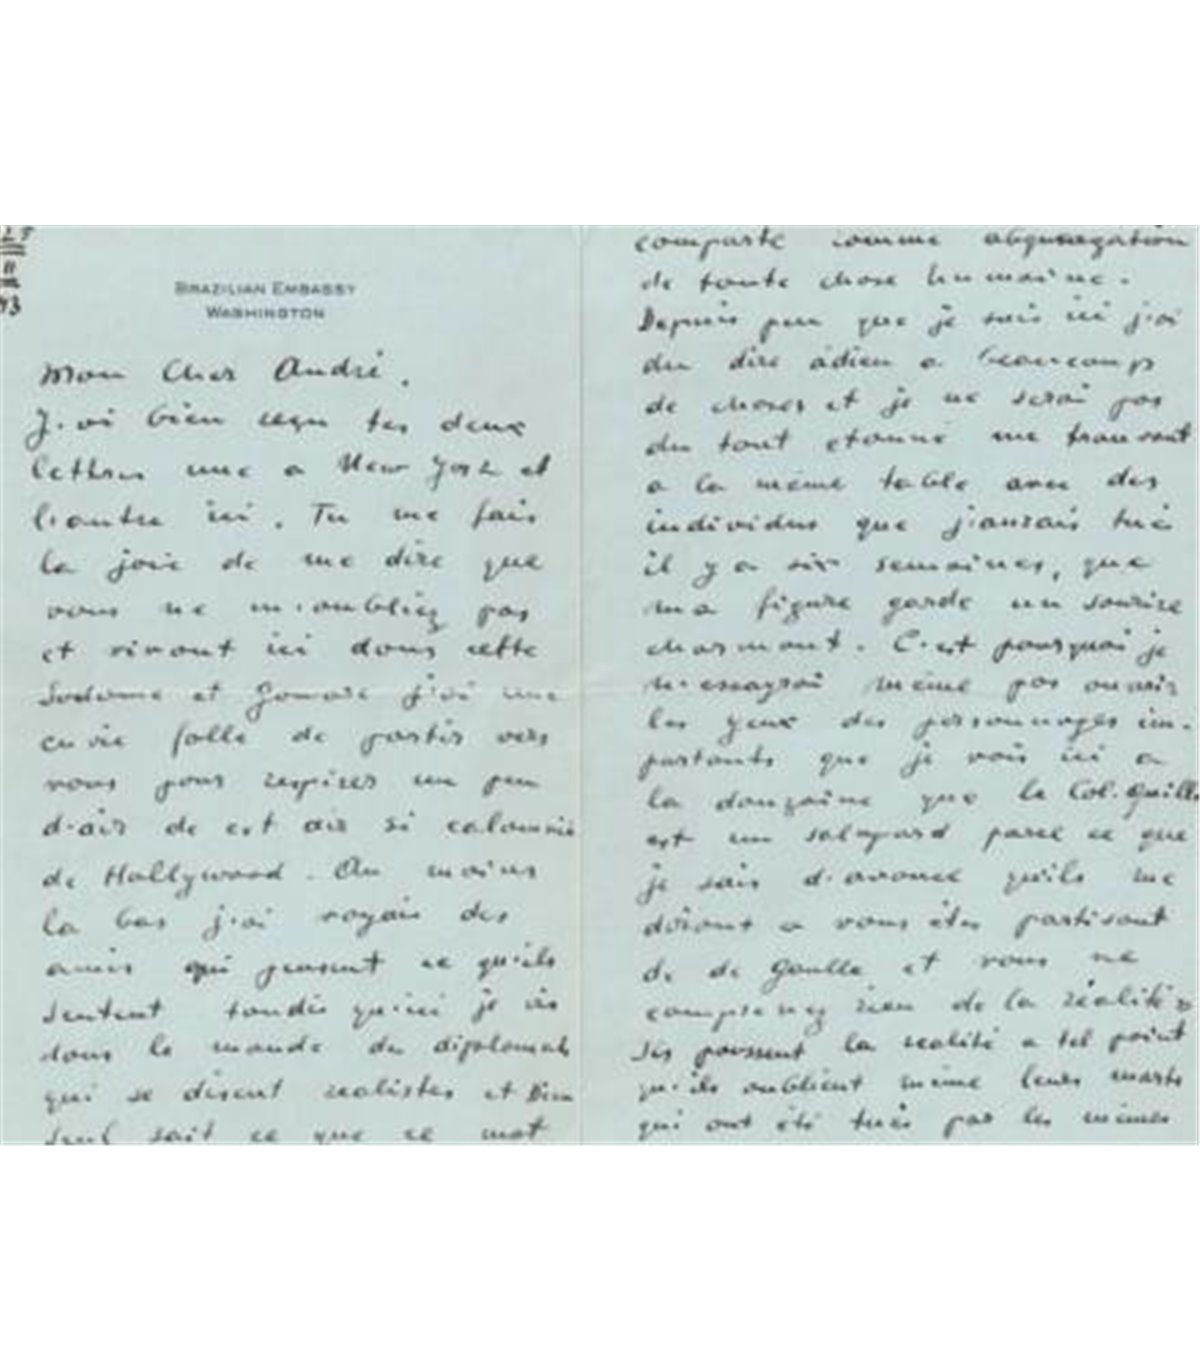 25
11
43
BRAZILIAN EMBASSY
WASHINGTON
Mon Cher André.
J'ai bien reçu tes deux
lettres une a New York et
l'autre ici. Tu me fais
la joie de me dire que
vous ne m'oubliez pas
et vivant ici dans cette
Sodome et Gomore j'ai une
envie folle de partir vers
vous pour respirer un peu
d'air de cet air si calomnié
de Hollywood. Au moins
la bas j'ai voyais des
amis qui pensent ce qu'ils
sentent tandis qu'ici je vis
dans le monde du diplomats
qui se disent realistes et Dieu
seul sait ce que ce mot
comporte comme
de toute chose humaine.
Depuis peu que je suis ici j'ai
du dire adieu a beaucoup
de choses et je ne serai pas
du tout etonné me trouvant
a la même table avec des
individus que j'aurais tué
il y a six semaines, que
ma figure garde un sourire
charmant. C'est pourquoi je
n'essayrai même pas ouvrir
les yeux des personnages im-
portants que je vois ici a
la douzaine que le Col.
est un salopard parce ce que
je sais d'avance qu'ils me
diront a vous êtes partisant
de de Gaulle et vous ne
comprenez rien de la réalité
Ils poussent la realité a tel point
qu'ils oublient même leurs morts
qui ont été tués par les mêmes